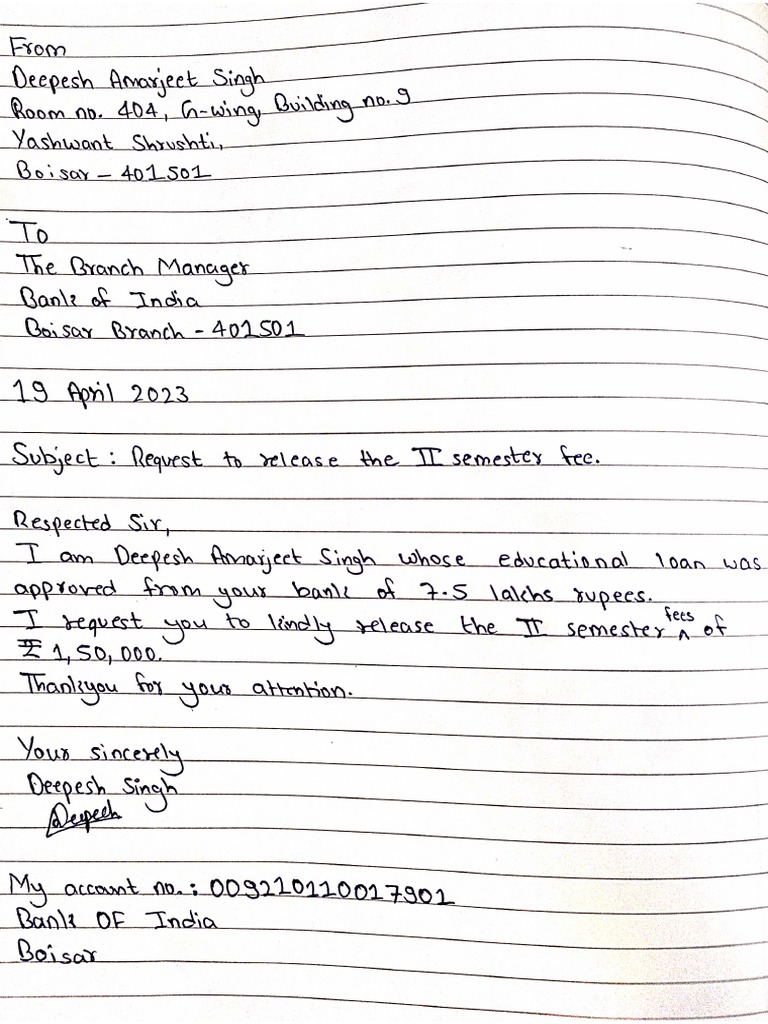 From
Deepesh Amarjeet Singh
Room no. 404, G-wing, Building no. 9
Yashwant Shrushti,
Boisar - 401501
To
The Branch Manager
Bank of India
Boisar Branch - 401501
19 April 2023
Subject : Request to release the II semester fee.
Respected Sir,
I am Deepesh Amarjeet Singh whose educational loan was
approved from your bank of 7.5 lakhs rupees.
I request you to kindly release the II semester fees of
₹ 1,50,000.
Thankyou for your attention.
Your sincerely
Deepesh Singh
Deepesh
My account no. : 009210110017901
Bank OF India
Boisar